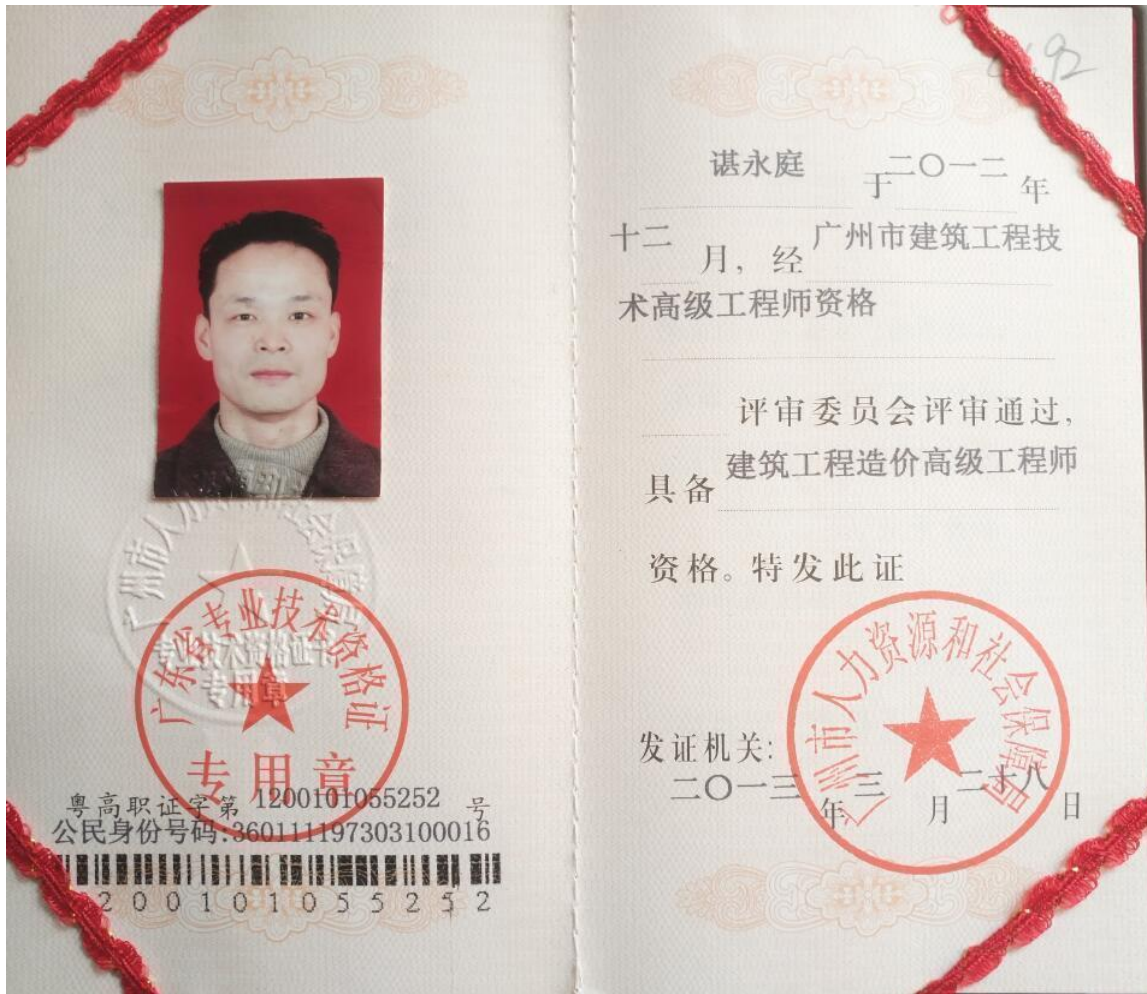 广州市人力资源和社会保障局
专业技术资格证书
专用章
广东省专业技术资格证
专用章
粤高职证字第 1200101055252 号
公民身份号码:360111197303100016
200101055252
692
谌永庭 于 二〇一二 年
十二 月，经 广州市建筑工程技
术高级工程师资格
评审委员会评审通过，
具备 建筑工程造价高级工程师
资格。特发此证
广州市人力资源和社会保障局
发证机关：
二〇一三 年 三 月 二十八 日